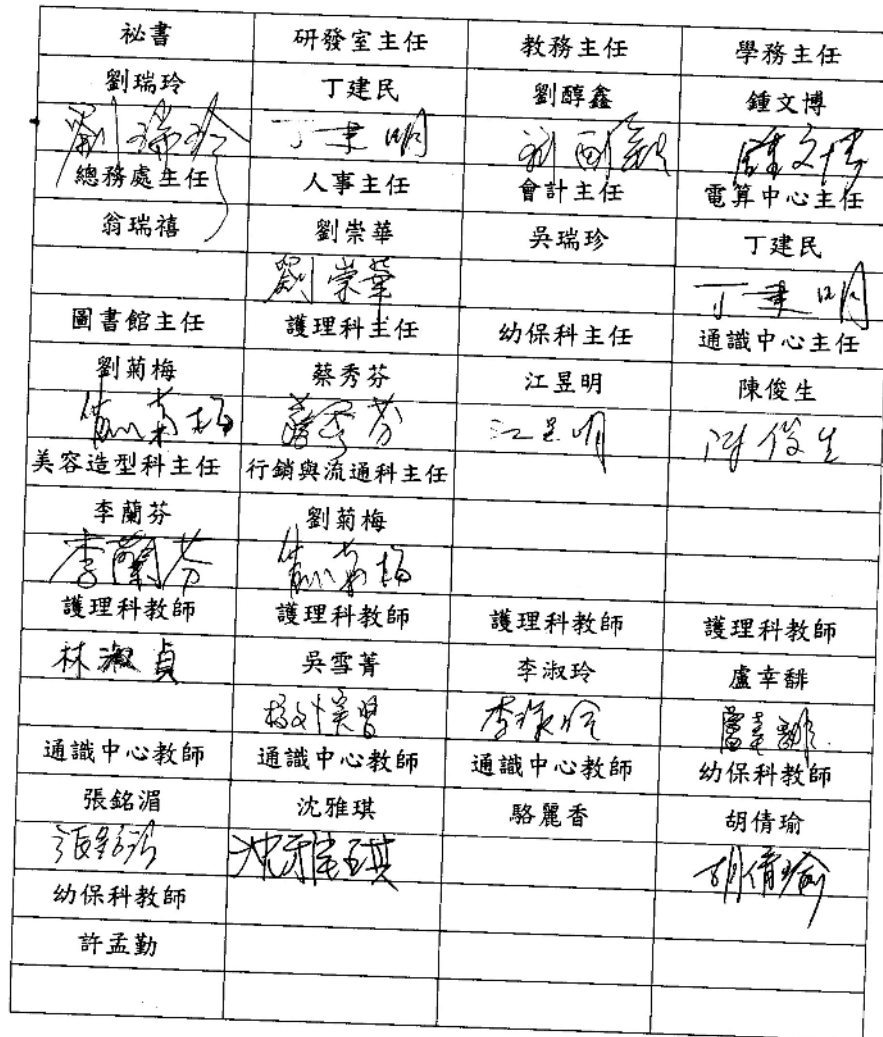 祕書 研發室主任 教務主任 學務主任
劉瑞玲 丁建民 劉醇鑫 鍾文博
劉瑞玲 丁建明 鍾文博
總務處主任 人事主任 會計主任 電算中心主任
翁瑞禧 劉崇華 吳瑞珍 丁建民
劉崇華 丁建明
圖書館主任 護理科主任 幼保科主任 通識中心主任
劉菊梅 蔡秀芬 江昱明 陳俊生
劉菊梅 蔡秀芬 江昱明 陳俊生
美容造型科主任 行銷與流通科主任
李蘭芬 劉菊梅
李蘭芬 劉菊梅
護理科教師 護理科教師 護理科教師 護理科教師
林淑貞 吳雪菁 李淑玲 盧幸馡
李淑玲 盧幸馡
通識中心教師 通識中心教師 通識中心教師 幼保科教師
張銘湄 沈雅琪 駱麗香 胡倩瑜
沈雅琪 胡倩瑜
幼保科教師
許孟勤